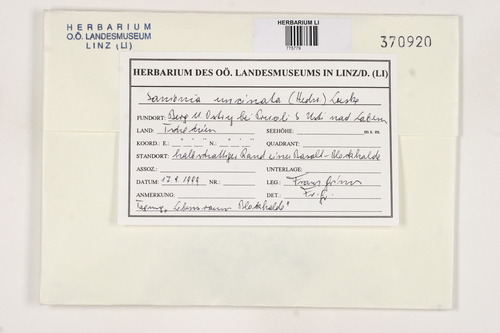 HERBARIUM
O.Ö. LANDESMUSEUM
LINZ (LI)
HERBARIUM LI
775779
370920
HERBARIUM DES OÖ. LANDESMUSEUMS IN LINZ/D. (LI)
Sanionia uncinata (Hedw.) Loeske
FUNDORT: Berg bei S Usti nad Labem
LAND: Tschechien SEEHÖHE: m s. m.
KOORD.: E.: ° ' " N.: ° ' " QUADRANT:
STANDORT: halbschattiger Rand einer Basalt-Blockhalde
ASSOZ.: UNTERLAGE:
DATUM: 17.9.1999 NR.: LEG.: Franz Grims
ANMERKUNG: DET.: Fr. G.
Tagung "Lebensraum Blockhalde"